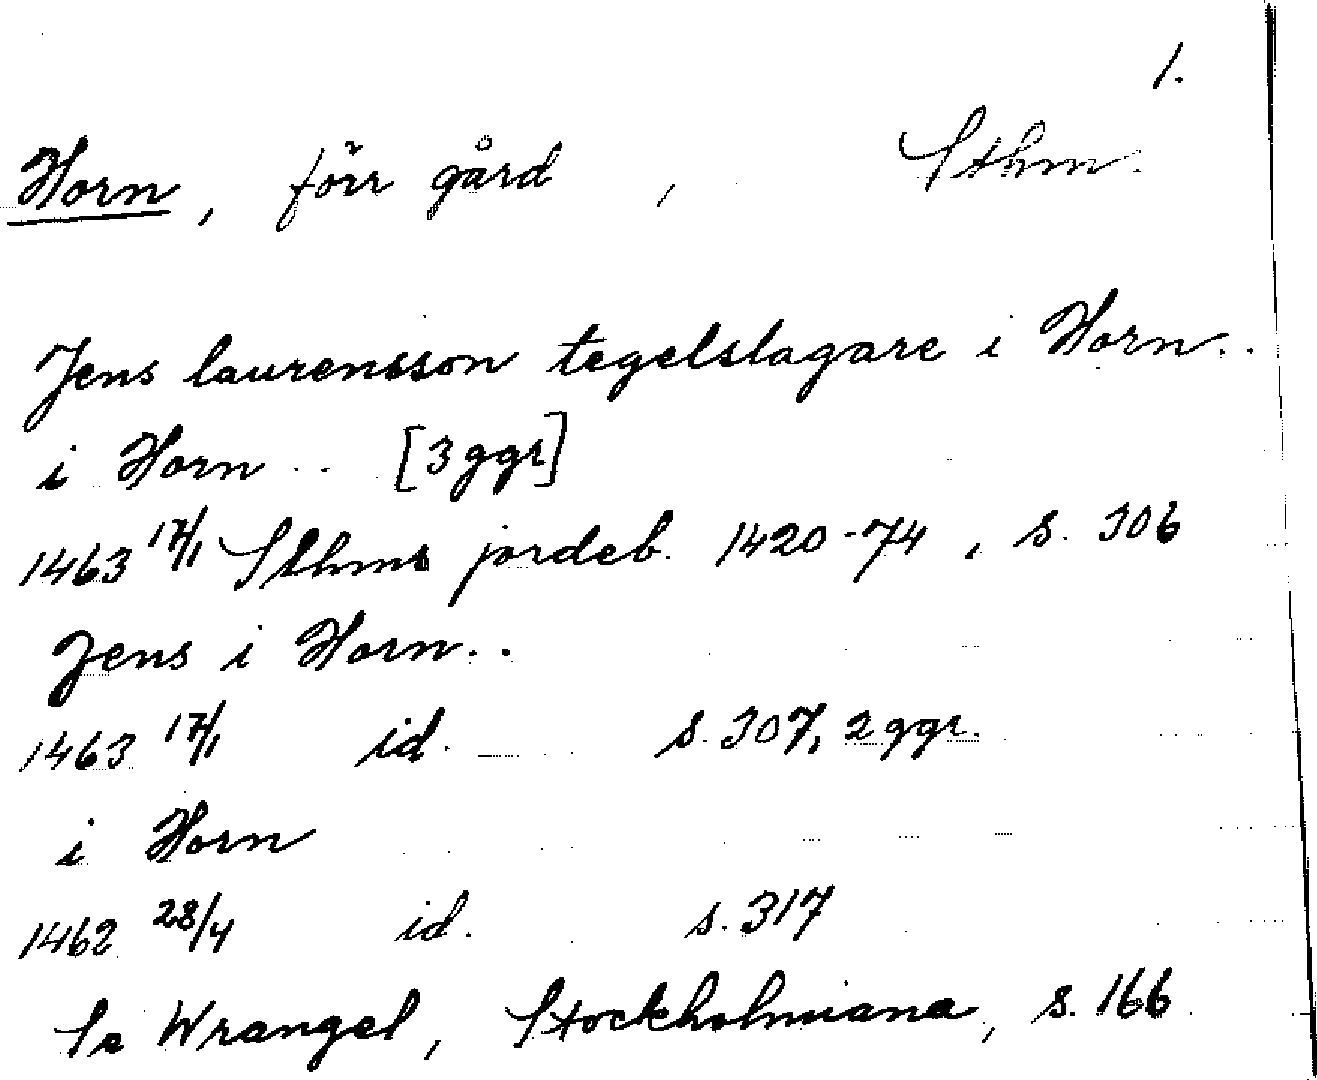 1.
Horn, förr gård, Sthm.
Jens laurensson tegelslagare i Horn..
i Horn .. [3 ggr]
1463 17/1 Sthms jordeb. 1420-74, s. 306
Jens i Horn..
1463 17/1 id. s. 307, 2 ggr.
i Horn
1462 28/4 id. s. 317
Se Wrangel, Stockholmiana, s. 166